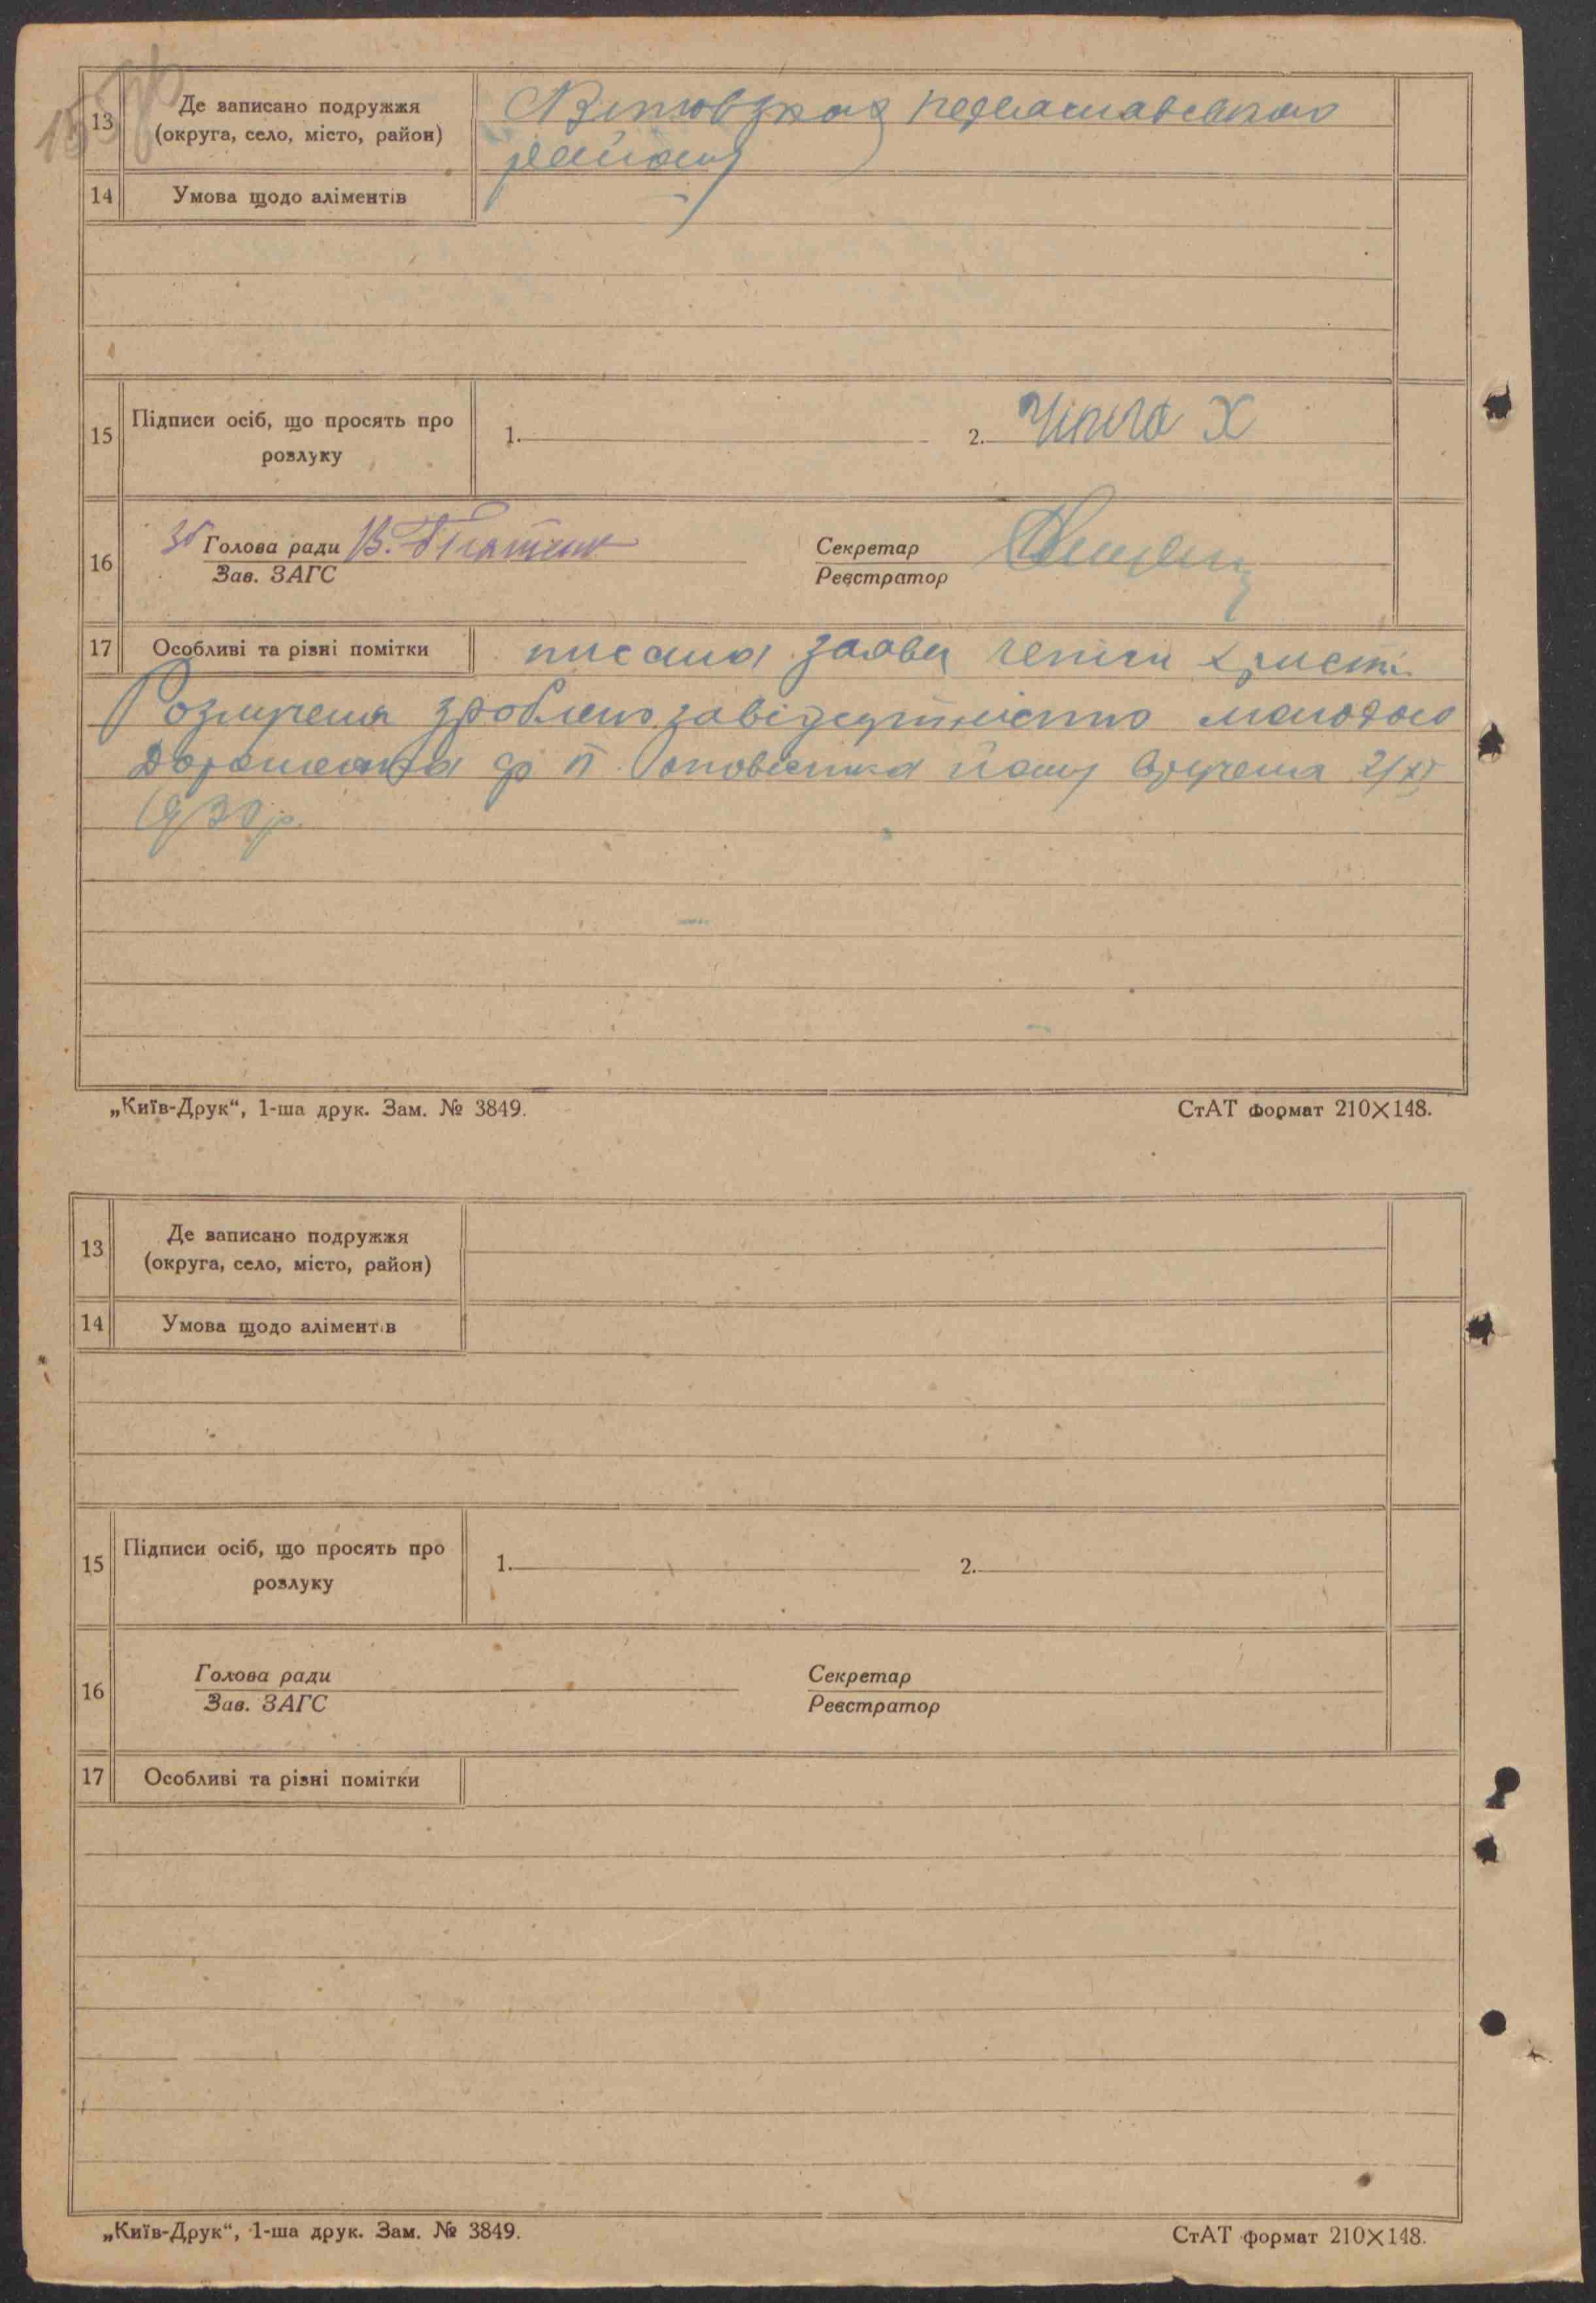 13
Де записано подружжя
(округа, село, місто, район)
району
14
Умова щодо аліментів
15
Підписи осіб, що просять про
розлуку
1.
2. Х
16
Голова ради В.
Зав. ЗАГС
Секретар
Реєстратор
17
Особливі та різні помітки
писана заява христі
Розлучення зроблено за відсутністю молодого
Дорошенка ф п. оповістка йому вручена 2/XI
1930 р.
„Київ-Друк“, 1-ша друк. Зам. № 3849.
СтАТ формат 210×148.
13
Де записано подружжя
(округа, село, місто, район)
14
Умова щодо аліментів
15
Підписи осіб, що просять про
розлуку
1.
2.
16
Голова ради
Зав. ЗАГС
Секретар
Реєстратор
17
Особливі та різні помітки
„Київ-Друк“, 1-ша друк. Зам. № 3849.
СтАТ формат 210×148.